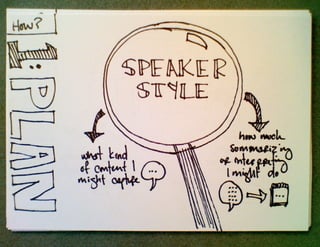 How?
1: PLAN
SPEAKER
STYLE
what kind
of content I
might capture
how much
summarizing
or interpreting
I might do